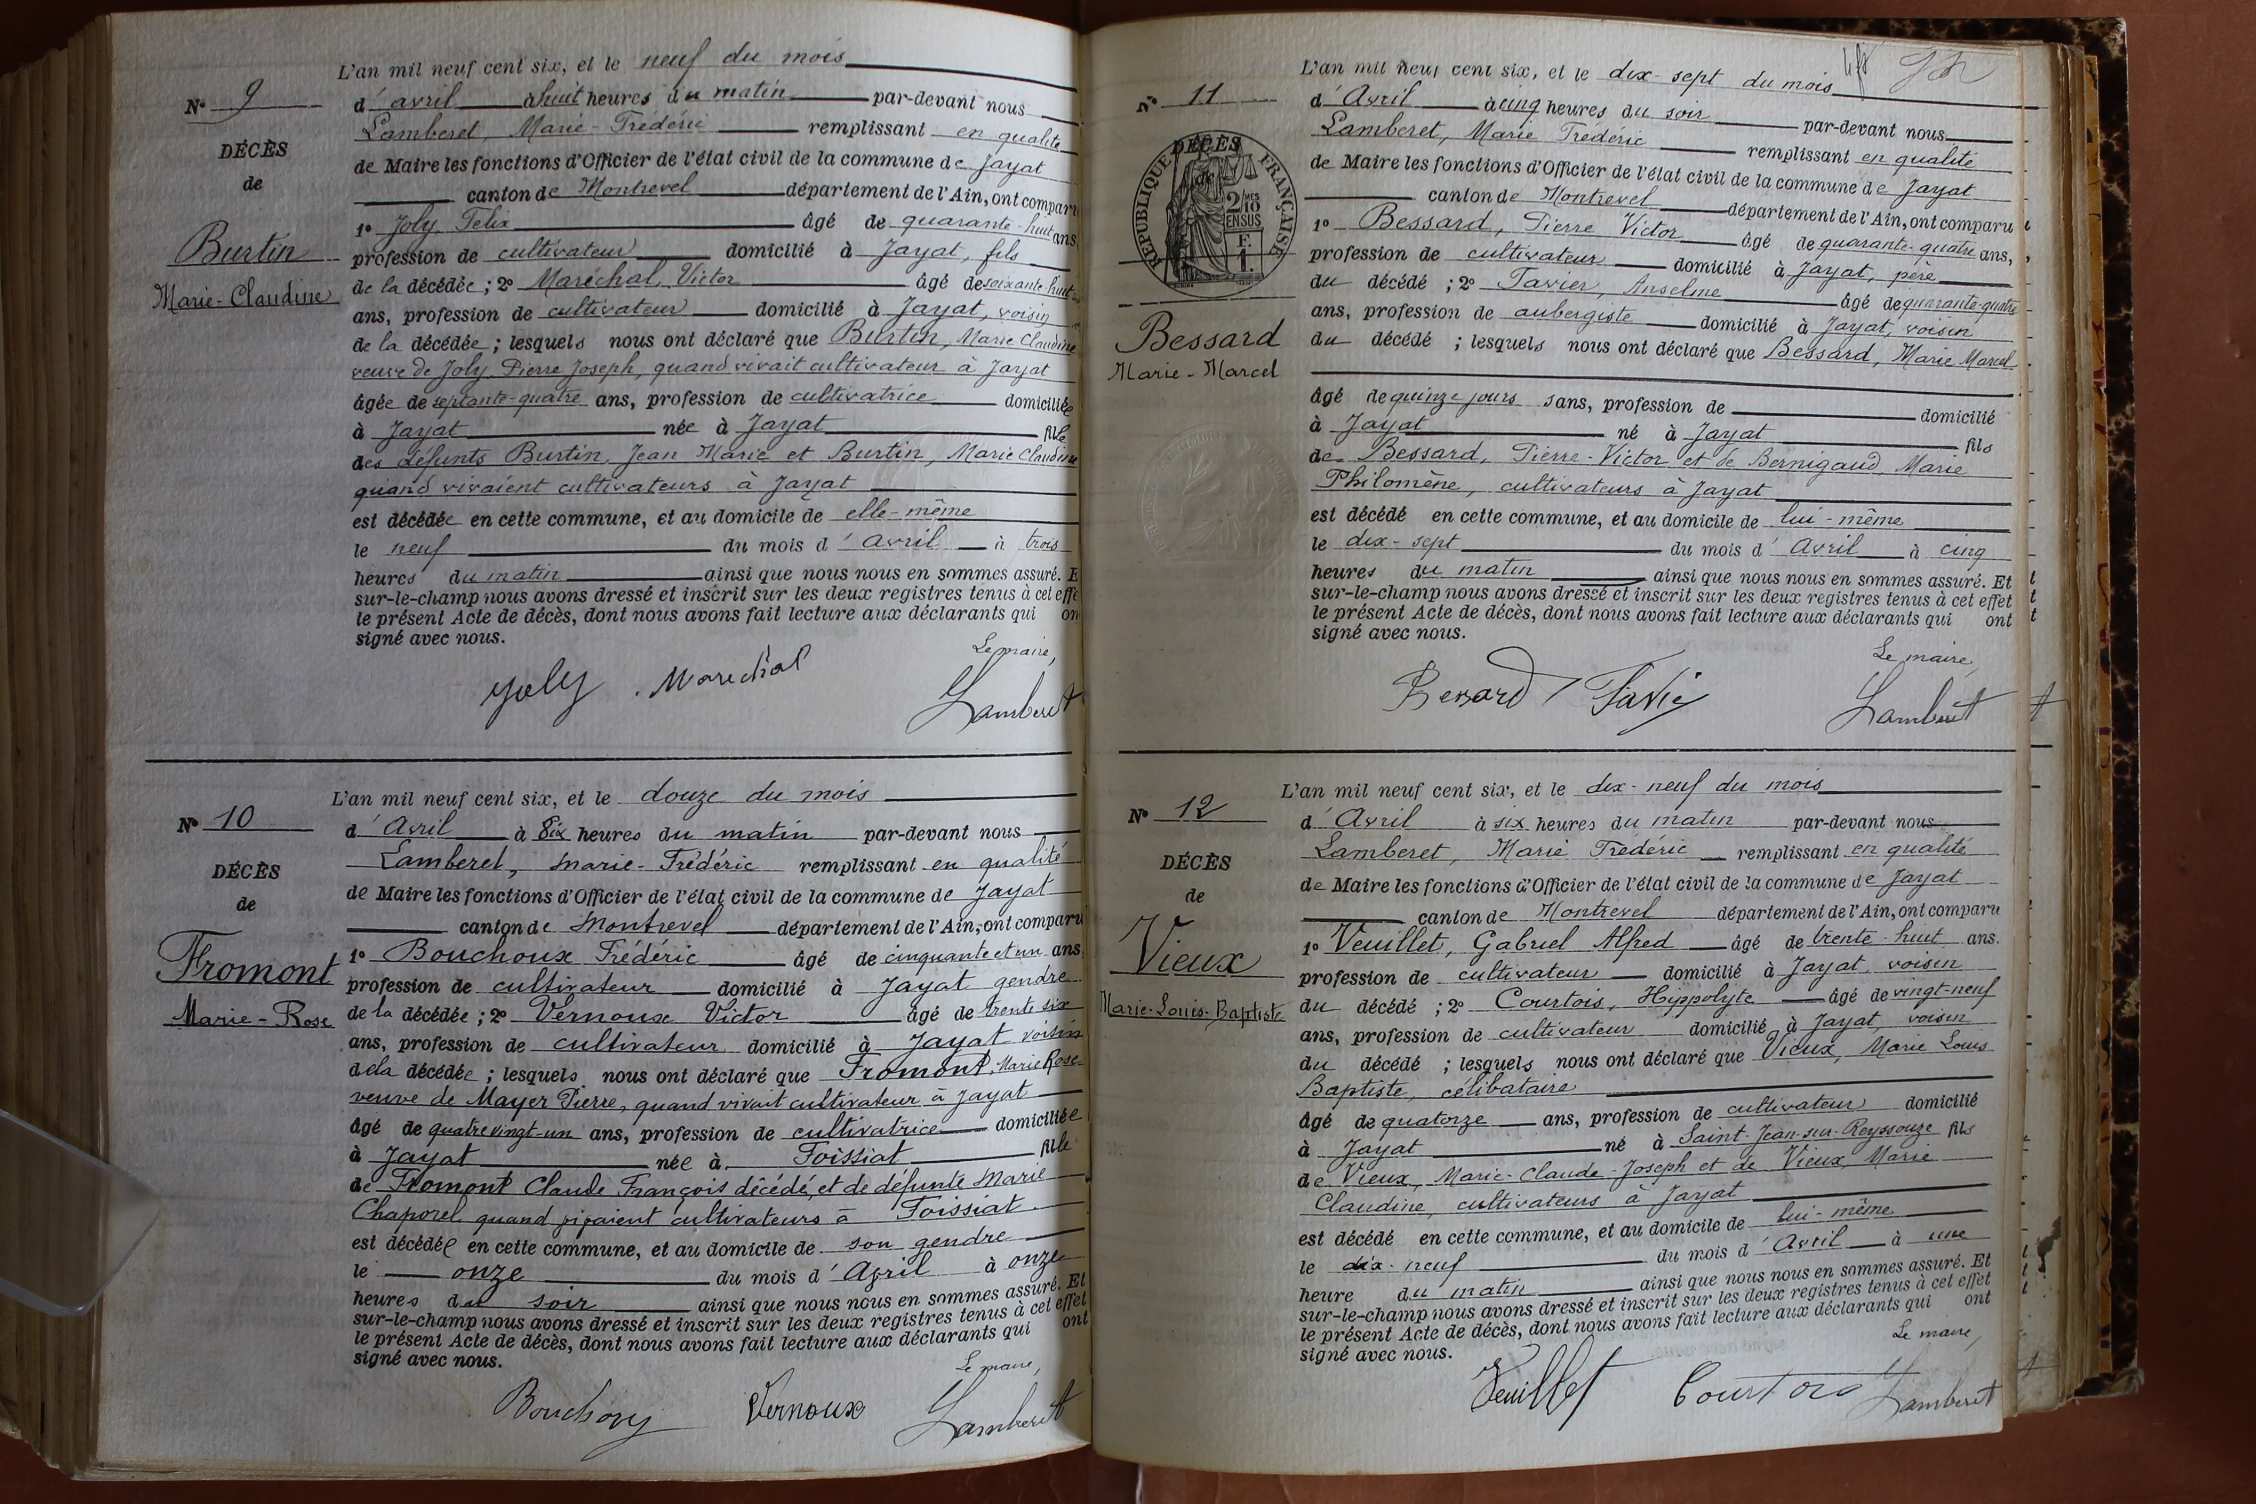 N° 9
DÉCÈS
de
Burtin
Marie-Claudine
L'an mil neuf cent six, et le neuf du mois
d'avril à huit heures du matin par-devant nous
Lamberet, Marie-Frédéric remplissant en qualité
de Maire les fonctions d'Officier de l'état civil de la commune de Jayat
canton de Montrevel département de l'Ain, ont comparu
1° Joly, Felix âgé de quarante-huit ans,
profession de cultivateur domicilié à Jayat, fils
de la décédée ; 2° Maréchal, Victor âgé de soixante huit
ans, profession de cultivateur domicilié à Jayat, voisin
de la décédée ; lesquels nous ont déclaré que Burtin, Marie Claudine
veuve de Joly, Pierre Joseph, quand vivait cultivateur à Jayat
âgée de septante-quatre ans, profession de cultivatrice domiciliée
à Jayat née à Jayat fille
des défunts Burtin, Jean Marie et Burtin, Marie Claudine
quand vivaient cultivateurs à Jayat
est décédée en cette commune, et au domicile de elle-même
le neuf du mois d'avril à trois
heures du matin ainsi que nous nous en sommes assuré. E
sur-le-champ nous avons dressé et inscrit sur les deux registres tenus à cet effe
le présent Acte de décès, dont nous avons fait lecture aux déclarants qui on
signé avec nous.
Le maire,
Joly Maréchal Lamberet
N° 10
DÉCÈS
de
Fromont
Marie-Rose
L'an mil neuf cent six, et le douze du mois
d'Avril à Six heures du matin par-devant nous
Lamberet, Marie-Frédéric remplissant en qualité
de Maire les fonctions d'Officier de l'état civil de la commune de Jayat
canton de Montrevel département de l'Ain, ont comparu
1° Bouchoux Frédéric âgé de cinquante et un ans
profession de cultivateur domicilié à Jayat gendre
de la décédée ; 2° Vernoux Victor âgé de trente six
ans, profession de cultivateur domicilié à Jayat voisin
de la décédée ; lesquels nous ont déclaré que Fromont, Marie Rose
veuve de Mayer Pierre, quand vivait cultivateur à Jayat
âgé de quatre vingt-un ans, profession de cultivatrice domiciliée
à Jayat née à Foissiat fille
de Fromont Claude François décédé, et de défunte Marie
Chaporel quand vivaient cultivateurs à Foissiat
est décédée en cette commune, et au domicile de son gendre
le onze du mois d'Avril à onze
heures du soir ainsi que nous nous en sommes assuré. Et
sur-le-champ nous avons dressé et inscrit sur les deux registres tenus à cet effet
le présent Acte de décès, dont nous avons fait lecture aux déclarants qui ont
signé avec nous.
Le maire,
Bouchoux Vernoux Lamberet
N° 11
DÉCÈS
de
RÉPUBLIQUE FRANÇAISE
2/10
EN SUS
Bessard
Marie-Marcel
L'an mil neuf cent six, et le dix-sept du mois
d'Avril à cinq heures du soir par-devant nous
Lamberet, Marie Frédéric remplissant en qualité
de Maire les fonctions d'Officier de l'état civil de la commune de Jayat
canton de Montrevel département de l'Ain, ont comparu
1° Bessard, Pierre Victor âgé de quarante-quatre ans,
profession de cultivateur domicilié à Jayat, père
du décédé ; 2° Tavier, Anselme âgé de quarante-quatre
ans, profession de aubergiste domicilié à Jayat, voisin
du décédé ; lesquels nous ont déclaré que Bessard, Marie Marcel
âgé de quinze jours sans, profession de domicilié
à Jayat né à Jayat fils
de Bessard, Pierre-Victor et de Bernigaud Marie
Philomène, cultivateurs à Jayat
est décédé en cette commune, et au domicile de lui-même
le dix-sept du mois d'Avril à cinq
heures du matin ainsi que nous nous en sommes assuré. Et
sur-le-champ nous avons dressé et inscrit sur les deux registres tenus à cet effet
le présent Acte de décès, dont nous avons fait lecture aux déclarants qui ont
signé avec nous.
Le maire,
Bessard Lamberet
N° 12
DÉCÈS
de
Vieux
Marie-Louis-Baptiste
L'an mil neuf cent six, et le dix-neuf du mois
d'Avril à six heures du matin par-devant nous
Lamberet, Marie Frédéric remplissant en qualité
de Maire les fonctions d'Officier de l'état civil de la commune de Jayat
canton de Montrevel département de l'Ain, ont comparu
1° Veuillet, Gabriel Alfred âgé de trente-huit ans.
profession de cultivateur domicilié à Jayat, voisin
du décédé ; 2° Courtois, Hippolyte âgé de vingt-neuf
ans, profession de cultivateur domicilié à Jayat, voisin
du décédé ; lesquels nous ont déclaré que Vieux, Marie Louis
Baptiste, célibataire
âgé de quatorze ans, profession de cultivateur domicilié
à Jayat né à Saint-Jean-sur-Reyssouze fils
de Vieux, Marie-Claude-Joseph et de Vieux, Marie
Claudine, cultivateurs à Jayat
est décédé en cette commune, et au domicile de lui-même
le dix-neuf du mois d'Avril à une
heure du matin ainsi que nous nous en sommes assuré. Et
sur-le-champ nous avons dressé et inscrit sur les deux registres tenus à cet effet
le présent Acte de décès, dont nous avons fait lecture aux déclarants qui ont
signé avec nous.
Le maire,
Veuillet Courtois Lamberet